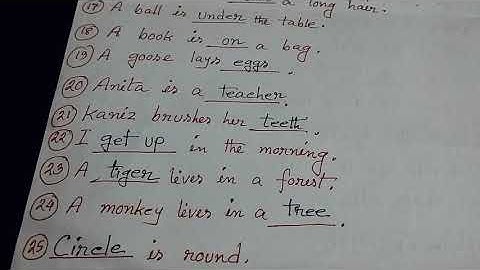 a long hair.
17 A ball is under the table.
18 A book is on a bag.
19 A goose lays eggs.
20 Anita is a teacher.
21 Kaniz brushes her teeth.
22 I get up in the morning.
23 A tiger lives in a forest.
24 A monkey lives in a tree.
25 Circle is round.